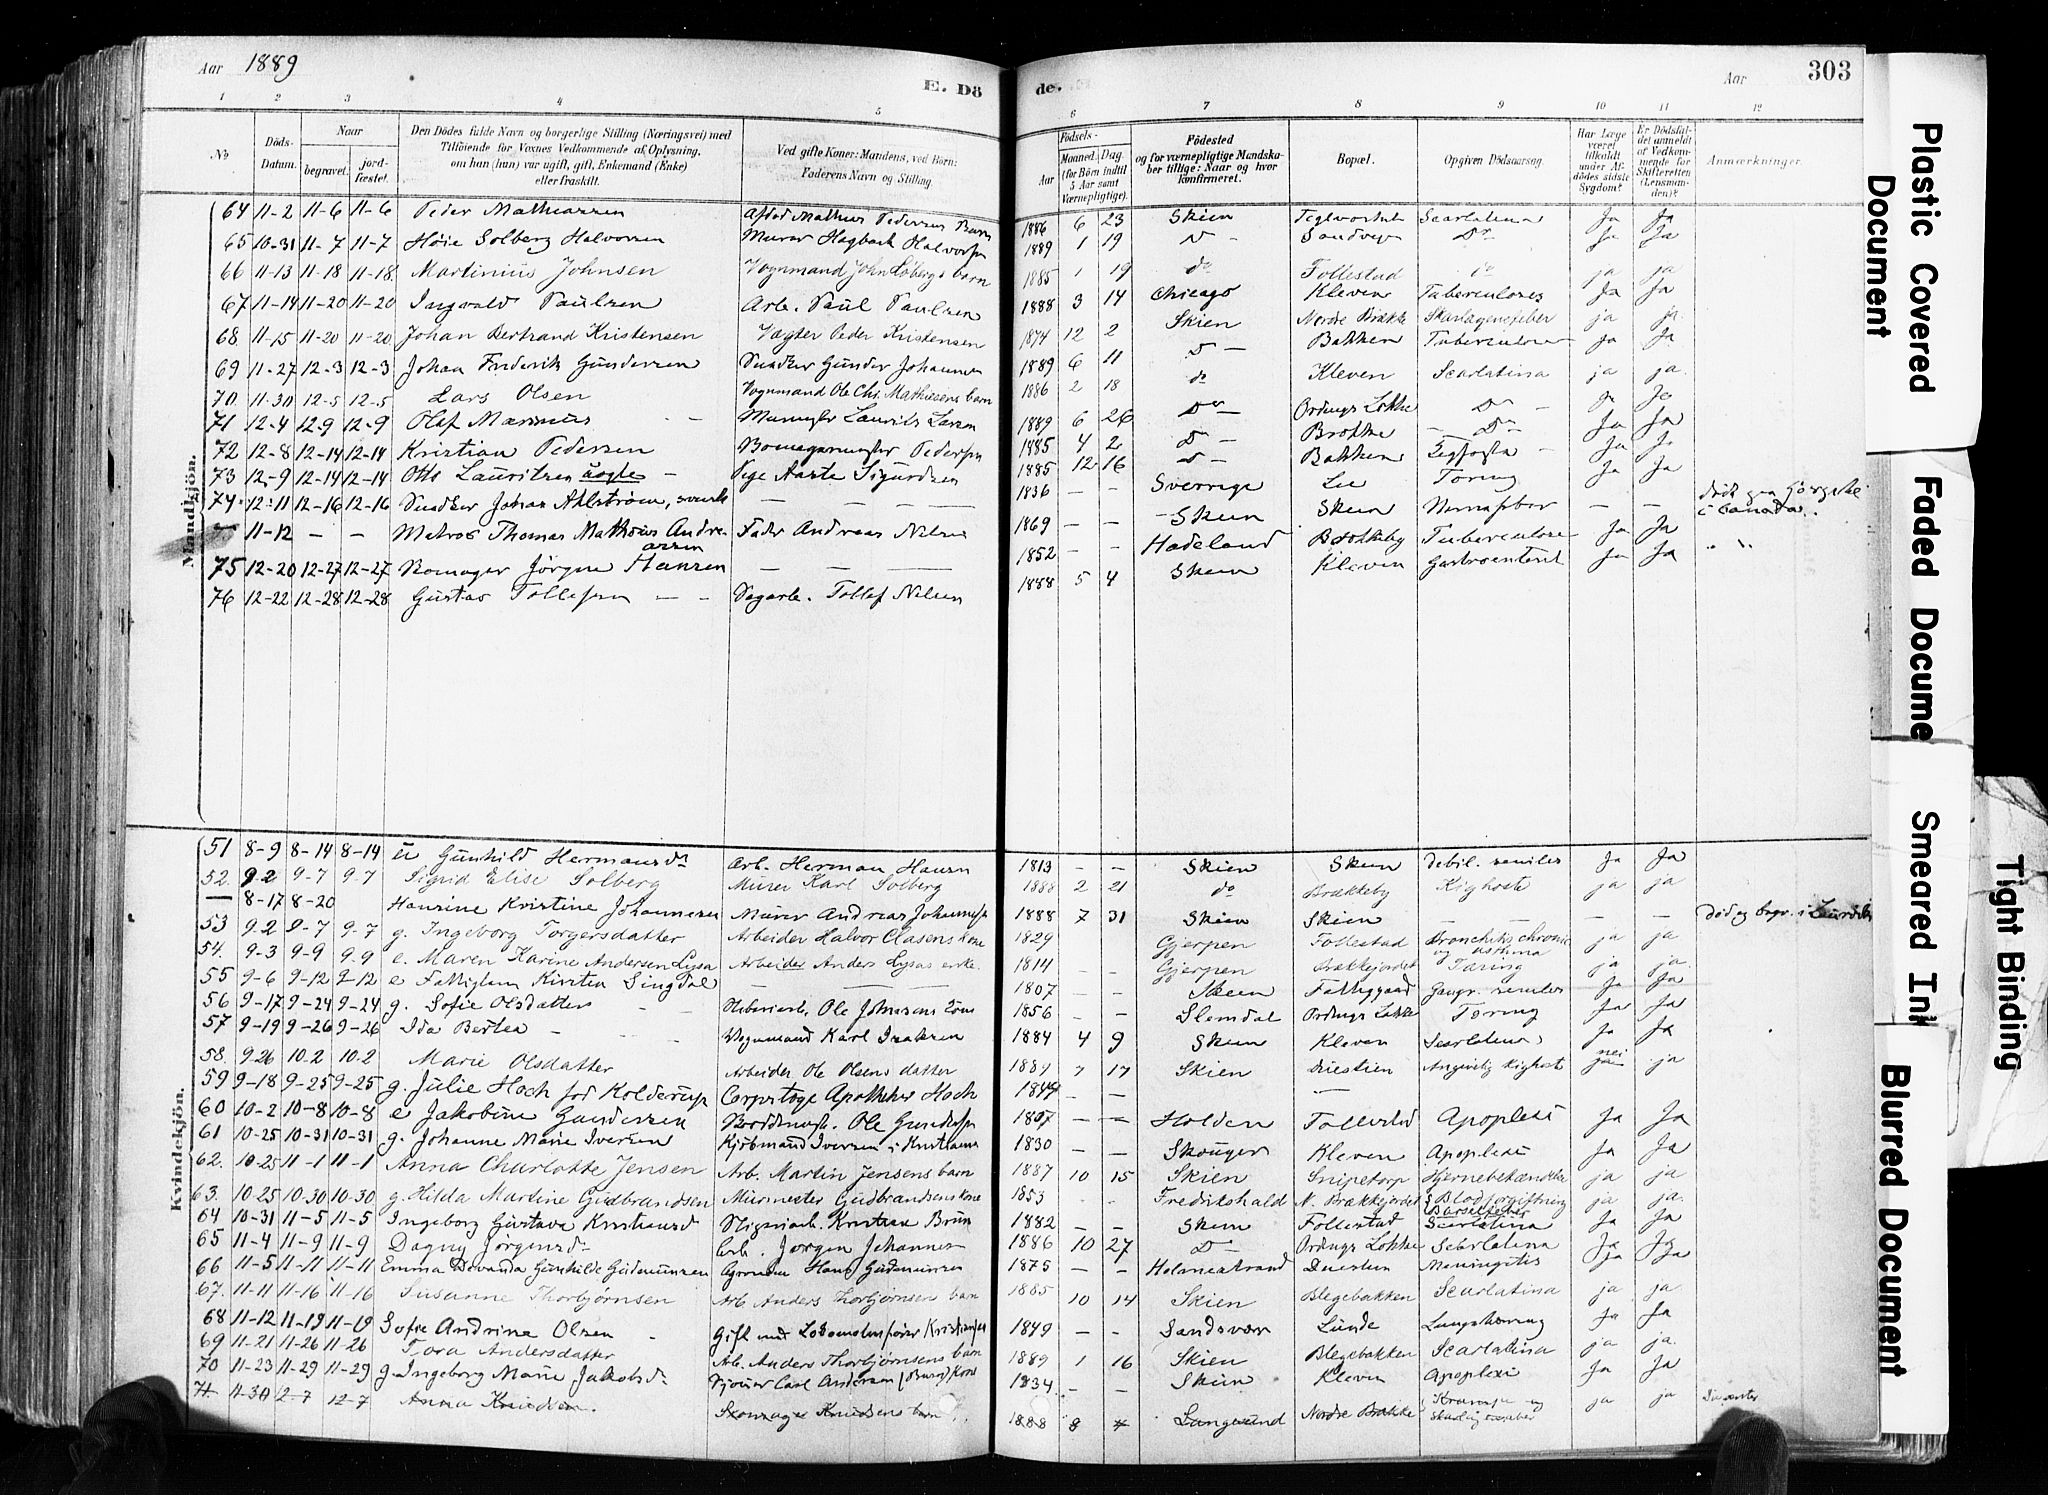 Aar 1889
E. Dö
de.
Aar
303
1 2 3 4 5 6 7 8 9 10 11 12
No
Döds-Datum.
Naar
begravet.
jord-fæstet.
Den Dödes fulde Navn og borgerlige Stilling (Næringsvei) med
Tilföiende for Voxnes Vedkommende af Oplysning,
om han (hun) var ugift, gift, Enkemand (Enke)
eller fraskilt.
Ved gifte Koner: Mandens, ved Börn:
Faderens Navn og Stilling.
Födsels-
Aar
Maaned. Dag.
(for Börn indtil
5 Aar samt
Værnepligtige).
Födested
og for værnepligtige Mandska-
ber tillige: Naar og hvor
konfirmeret.
Bopæl.
Opgiven Dödsaarsag.
Har Læge
været
tilkaldt
under Af-
dödes sidste
Sygdom?
Er Dödsfal-
det anmeldt
af Vedkom-
mende for
Skifteretten
(Lensman-
den)?
Anmærkninger.
Mandkjön.
64 11-2 11-6 11-6 Peder Mathiassen 1886 6 23 Skien Scarlatina Ja Ja
65 10-31 11-7 11-7 Höie Solberg Halvorsen Murer Hagbart Halvorsen 1889 1 19 Do Sandvigen Do Ja Ja
66 11-13 11-18 11-18 Martinius Johnsen Vognmand John Löbergs barn 1885 1 19 do Follestad do ja ja
67 11-14 11-20 11-20 Ingvald Paulsen Arb. Paul Paulsen 1888 3 14 Chicago Kleven Tuberculoses Ja Ja
68 11-15 11-20 11-20 Johan Bertrand Kristensen Vægter Peder Kristensen 1874 12 2 Skien Nordre Brække Skarlagensfeber ja ja
69 11-27 12-3 12-3 Johan Frederik Gundersen Snedker Gunder Johannes 1889 6 11 Do Bakken Tuberculose Ja Ja
70 11-30 12-5 12-5 Lars Olsen Vognmand Ole Chr. Mathiesens barn 1886 2 18 do Kleven Scarlatina ja ja
71 12-4 12-9 12-9 Olaf Marinius Laurits Larsen 1889 6 26 Do Do Ja Ja
72 12-8 12-14 12-14 Kristian Pedersen Pedersen 1885 4 2 Do Do Ja Ja
73 12-9 12-14 12-14 Otto Lauritzen uægte Pige Aaste Sigurdsen 1885 12 16 Do Bakken Ja Ja
74 12-11 12-16 12-16 Snedker Johan Ahlström, svensk 1836 Sverrige Lie Tæring Ja Ja
11-12 Matros Thomas Mathæus Andreassen Fader Andreas Nilsen 1869 Skien Skien Nervefeber i Canada.
75 12-20 12-27 12-27 Jörgen Hansen 1852 Hadeland Brækkeby Tuberculose Ja Ja
76 12-22 12-28 12-28 Gustav Tollefsen Sagarb. Tollef Nilsen 1888 5 4 Skien Kleven Gastroenterit Ja Ja
Kvindekjön.
51 8-9 8-14 8-14 u Gunhild Hermansdr Arb. Herman Hansen 1813 Skien Skien debil. seniles Ja Ja
52 9-2 9-7 9-7 Sigrid Elise Solberg Murer Karl Solberg 1888 2 21 do Brækkeby Kighoste ja ja
8-17 8-20 Hansine Kristine Johannesen Murer Andreas Johannesen 1888 7 31 Skien Skien Död og begr. i
53 9-2 9-7 9-7 g. Ingeborg Torgersdatter Arbeider Halvor Clasens kone 1829 Gjerpen Follestad Bronchitis chronic og asthma ja ja
54 9-3 9-9 9-9 e. Maren Karine Andersen Lysa Arbeider Anders Lysas enke. 1814 Gjerpen Brækkejordet Tæring ja ja
55 9-6 9-12 9-12 e Fattiglem Kirsten Singdal 1807 Skien Fattiggaard Gangr. seniles Ja Ja
56 9-17 9-24 9-24 g. Sofie Olsdatter Ole Johnsens Kone 1856 Slemdal Tæring Ja Ja
57 9-19 9-26 9-26 Ida Bertea Vognmand Karl Isaksen 1884 4 9 Skien Kleven Scarlatina Ja Ja
58 9-26 10-2 10-2 Marie Olsdatter Arbeider Ole Olsens datter 1889 7 17 Skien Duestien Angivelig Kighoste nei ja
59 9-18 9-25 9-25 g. Julie Hoch föd Kolderup Corpslæge Apotheker Hoch
60 10-2 10-8 10-8 e Jakobine Gundersen Ole Gundersen 1807 Holden Follestad Apoplexi Ja Ja
61 10-25 10-31 10-31 g. Johanne Marie Iversen Kjöbmand Iversen i Kristiania 1830 Skouger Kleven Apoplexi Ja Ja
62. 10-25 11-1 11-1 Anna Charlotte Jensen Arb. Martin Jensens barn 1887 10 15 Skien Snipetorp Hjernebetændelse ja ja
63. 10-25 10-30 10-30 g. Hilda Martine Gudbrandsen Murmester Gudbrandsens kone 1853 Fredrikshald N. Brækkejordet Blodforgiftning Barselfeber ja ja
64 10-31 11-5 11-5 Ingeborg Gustava Kristiansd Kristian Brun 1882 Skien Follestad Scarlatina Ja Ja
65 11-4 11-9 11-9 Dagny Jörgensdr Arb. Jörgen Johannes 1886 10 27 Do Scarlatina Ja Ja
66 11-5 11-11 11-11 Emma Gunhilde Gudmunsen Hans Gudmunsen 1875 Holmestrand Duestien Meningitis Ja Ja
67. 11-11 11-16 11-16 Susanne Thorbjörnsen Arb. Anders Thorbjörnsen barn 1885 10 14 Skien Blegebakken Scarlatina ja ja
68 11-12 11-19 11-19 Sofie Andrine Olsen Gift med Lokomotivförer Kristiansen 1849 Sandsvær Lunde Ja Ja
69 11-21 11-26 11-26 Tora Andersdatter Arb. Anders Thorbjörnsens barn 1889 1 16 Skien Blegebakken Scarlatina ja ja
70 11-23 11-29 11-29 g. Ingeborg Marie Jakobsdr Carl Andersen Kone 1834 Skien Kleven Apoplexi Ja Ja
71 11-30 12-7 12-7 Anna Knudsen. Skomager Knudsens barn 1888 8 Langesund Nordre Brække Krampe og ja ja
Plastic Covered Document
Faded Docume
Smeared Ink
Tight Binding
Blurred Document